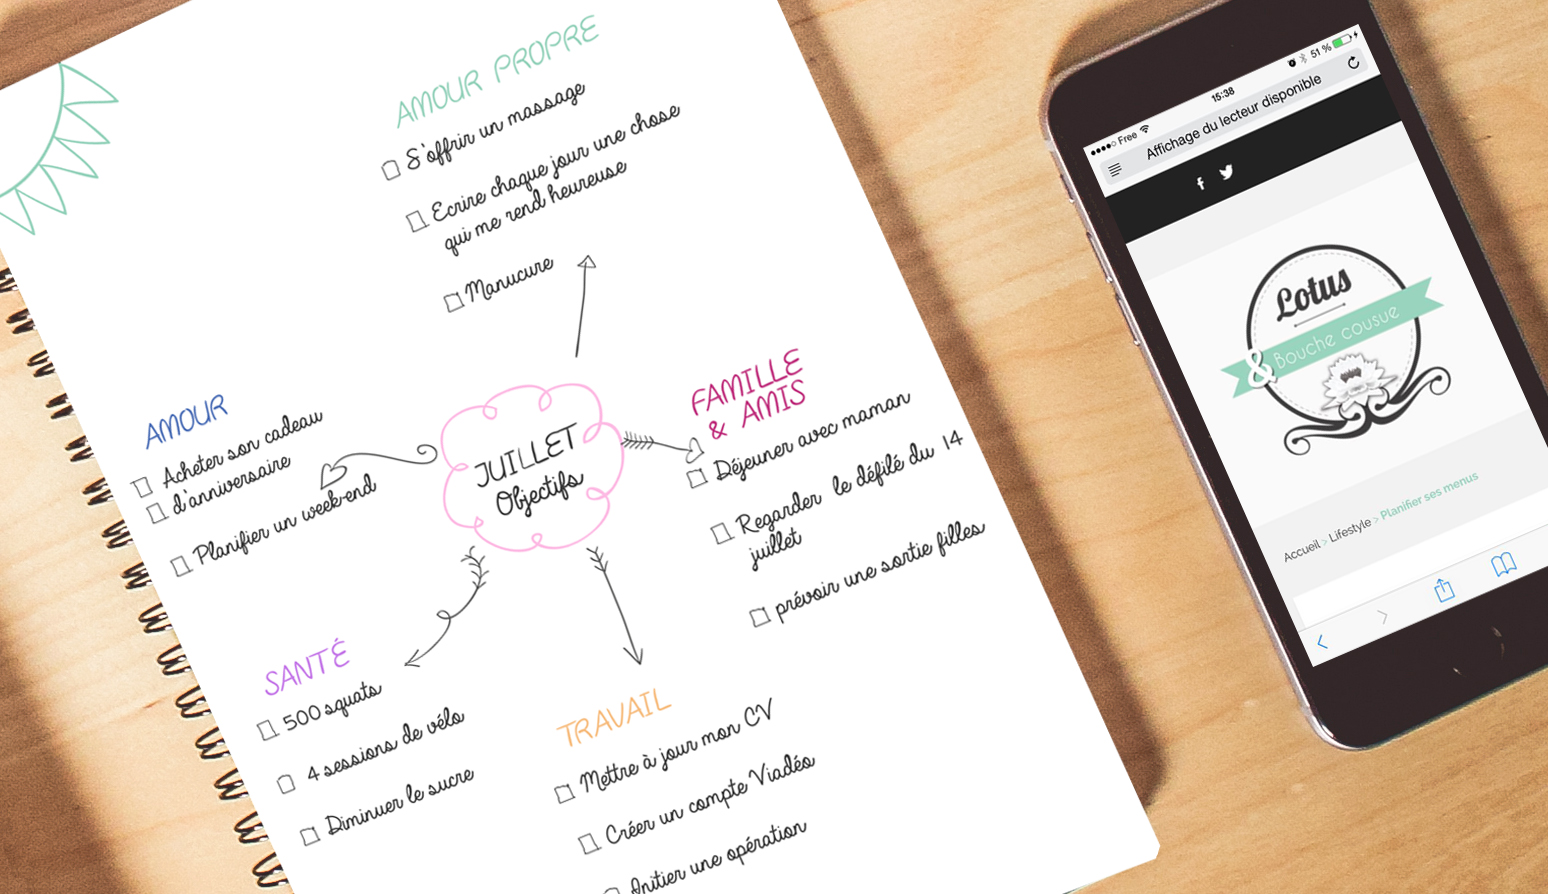 AMOUR PROPRE
S'offrir un massage
Ecrire chaque jour une chose
qui me rend heureuse
Manucure
AMOUR
Acheter son cadeau
d'anniversaire
Planifier un week-end
JUILLET
Objectifs
FAMILLE
& AMIS
Déjeuner avec maman
Regarder le défilé du 14
juillet
prévoir une sortie filles
SANTÉ
500 squats
4 sessions de vélo
Diminuer le sucre
TRAVAIL
Mettre à jour mon CV
Créer un compte Viadéo
Initier une opération
Free 15:38 51 %
Affichage du lecteur disponible
Lotus
& Bouche cousue
Accueil > Lifestyle > Planifier ses menus